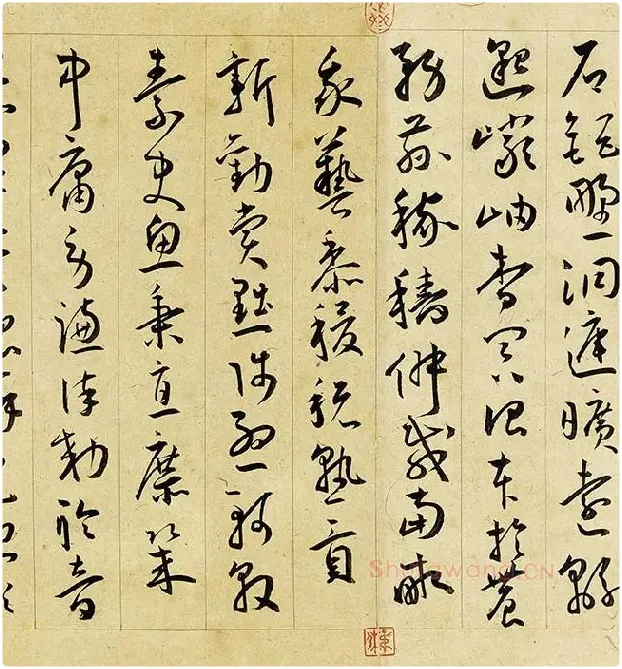 石鉅野洞庭曠遠緜
邈巖岫杳冥治本於農
務茲稼穡俶載南畝
我藝黍稷稅熟貢
新勸賞黜陟孟軻敦
素史魚秉直庶幾
中庸勞謙謹勅聆音
Shufawang.CN